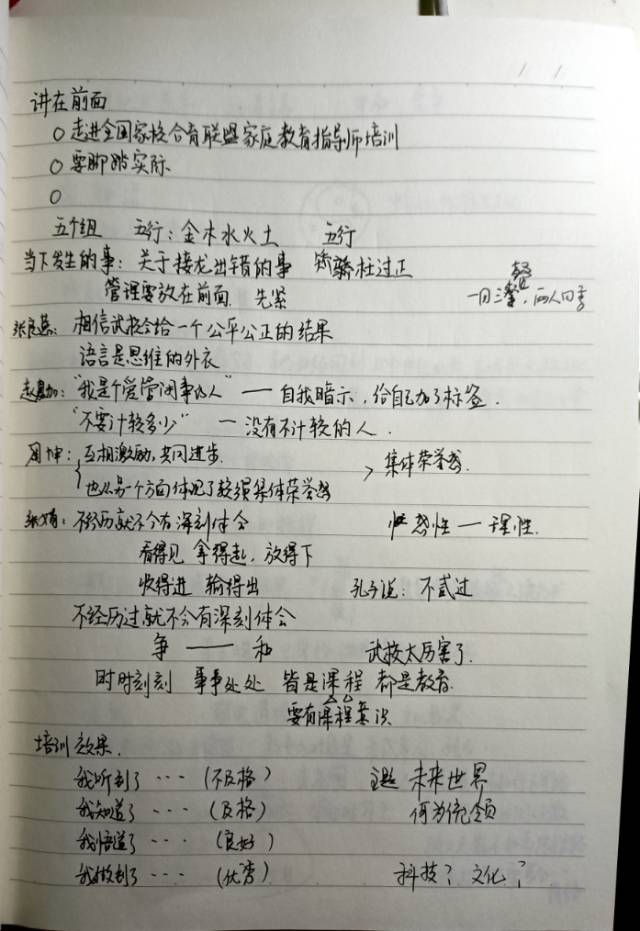 讲在前面
○ 走进全国家校合育联盟家庭教育指导师培训
○ 要脚踏实际
○
五个组 五行：金木水火土 五行
当下发生的事：关于接龙出错的事 矫枉过正
管理要放在前面 先紧 一日三 两人四季
相信武校会给一个公平公正的结果
语言是思维的外衣
“我是个爱管闲事的人” —— 自我暗示，给自己加了标签．
“不要计较多少” — 没有不计较的人．
周坤：互相激励，共同进步． 集体荣誉感
也从另一个方面体现了较强集体荣誉感
不经历就不会有深刻体会 感性 — 理性．
看得见 拿得起，放得下
收得进 输得出 孔子说：不贰过
不经历过就不会有深刻体会
争 —— 和 武校太厉害了．
时时刻刻 事事处处 皆是课程 都是教育．
要有课程意识
培训效果．
我听到了 ··· （不及格） 主题 未来世界
我知道了 ··· （及格） 何为统领
我悟道了 ··· （良好）
我做到了 ··· （优秀） 科技？ 文化？